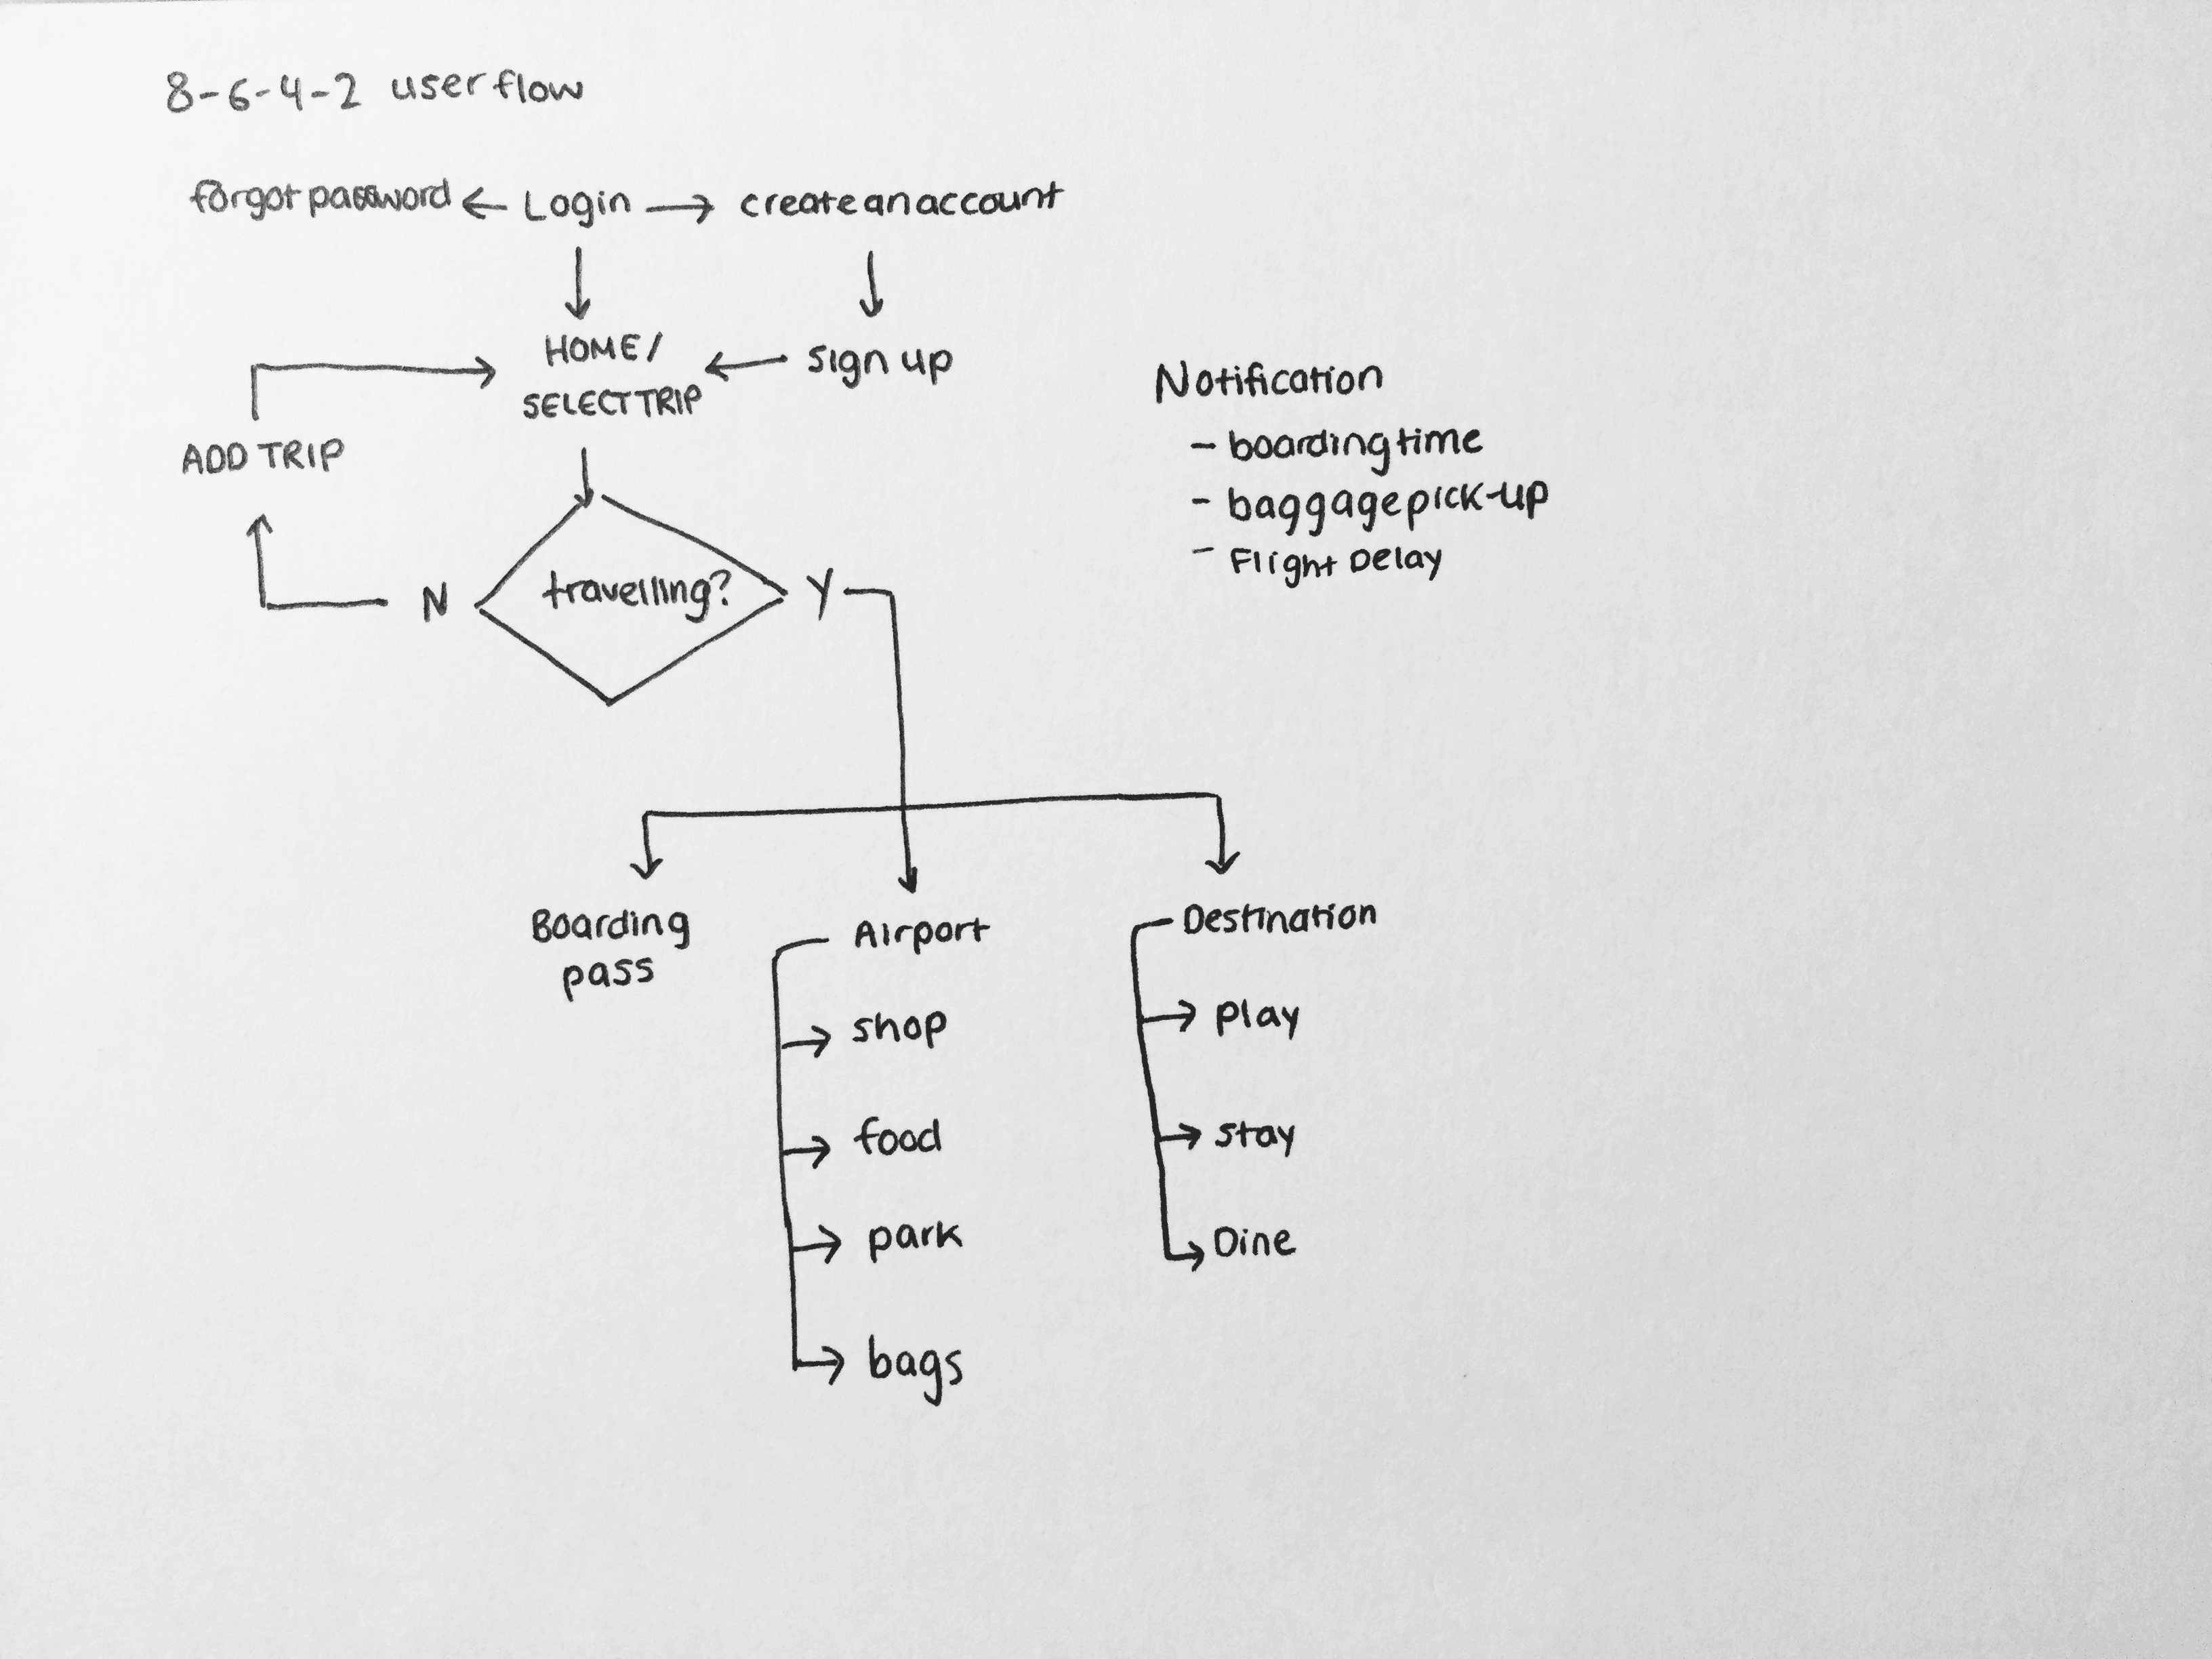 8-6-4-2 user flow
forgot password ← Login → create an account
HOME/
SELECT TRIP
← sign up
ADD TRIP
N
travelling?
Y
Notification
- boarding time
- baggage pick-up
- Flight Delay
Boarding
pass
Airport
shop
food
park
bags
Destination
play
stay
Dine